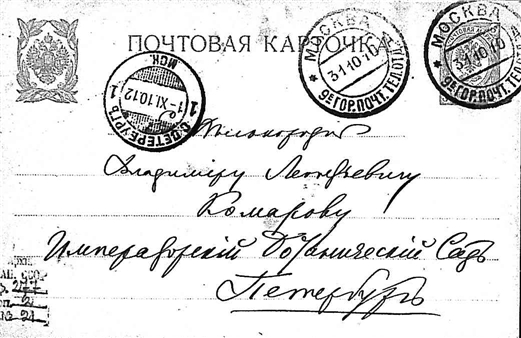 ПОЧТОВАЯ КАРТОЧКА
МОСКВА
31.10.10
9Е ГОР.ПОЧТ.ТЕЛ.ОТД.
МОСКВА
31.10.10
9Е ГОР.ПОЧТ.ТЕЛ.
С.ПЕТЕРБУРГЪ
1-XI.10.12
1 1
Владиміру Леонтьевичу
Комарову
Императорскій Ботаническій Садъ
Петербургъ